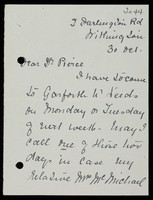 2044
3 Darlington Rd
Withington
30 Oct.
Dear Dr Pierce
I have to come
to Garforth W Leeds
on Monday or Tuesday
of next week - may I
call one of these two
days in case my
relative Mrs McMichael